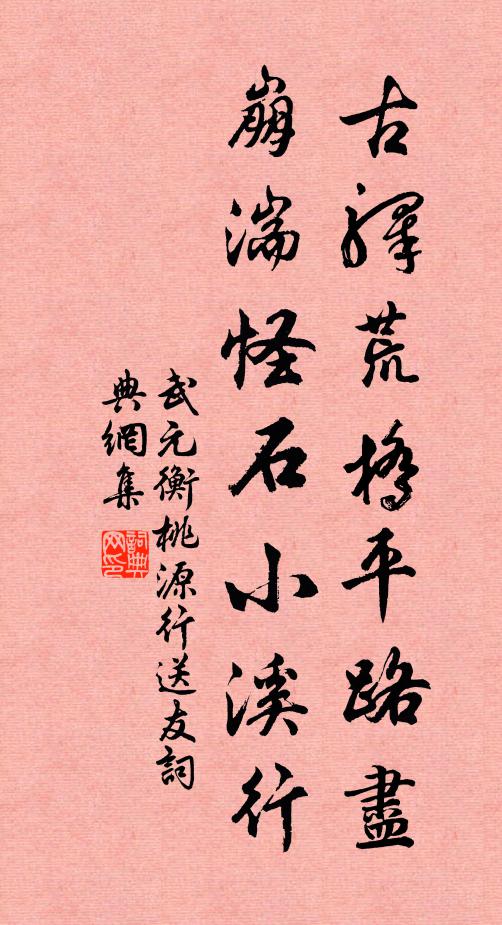 古驛荒橋平路盡
崩湍怪石小溪行
武元衡桃源行送友詞
典網集
詞典网印